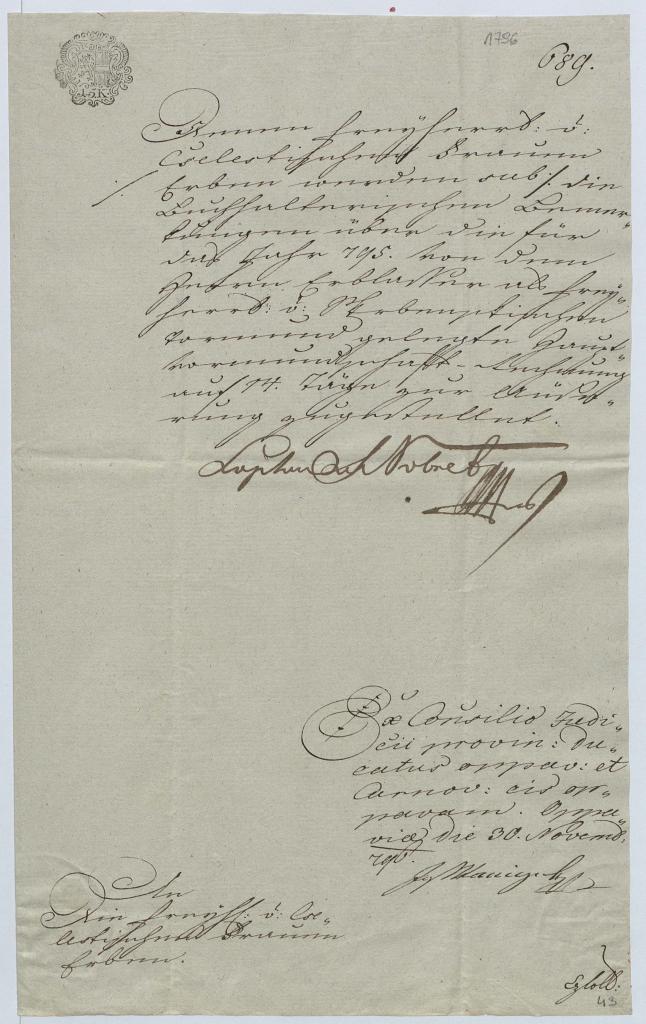 1796
689.
15K
Denen freyherrl: v:
Cselestischen Frauen
Erben werden sub ·/. die
·/.
Buchhalterischen Bemer„
kungen über die für
das Jahr 795. von dem
Herrn Erblasser als frey„
herrl: v: Skrbenskischen
Vormund gelegte Haupt„
vormundschafts-Rechnung
auf 14. Täge zur Äuße„
rung zugestellet.
Ex Consilio Judi„
cii provin: Du„
catus oppav: et
Carnov: cis op„
pavam. Oppa„
viæ die 30. Novemb:
796.
An
Die freyh: v: Cse„
lestischen Frauen
Erben.
43